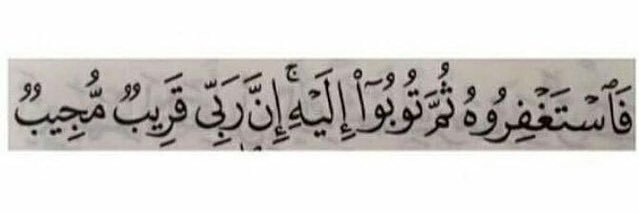 فَٱسۡتَغۡفِرُوهُ ثُمَّ تُوبُوٓاْ إِلَيۡهِۚ إِنَّ رَبِّي قَرِيبٞ مُّجِيبٞ